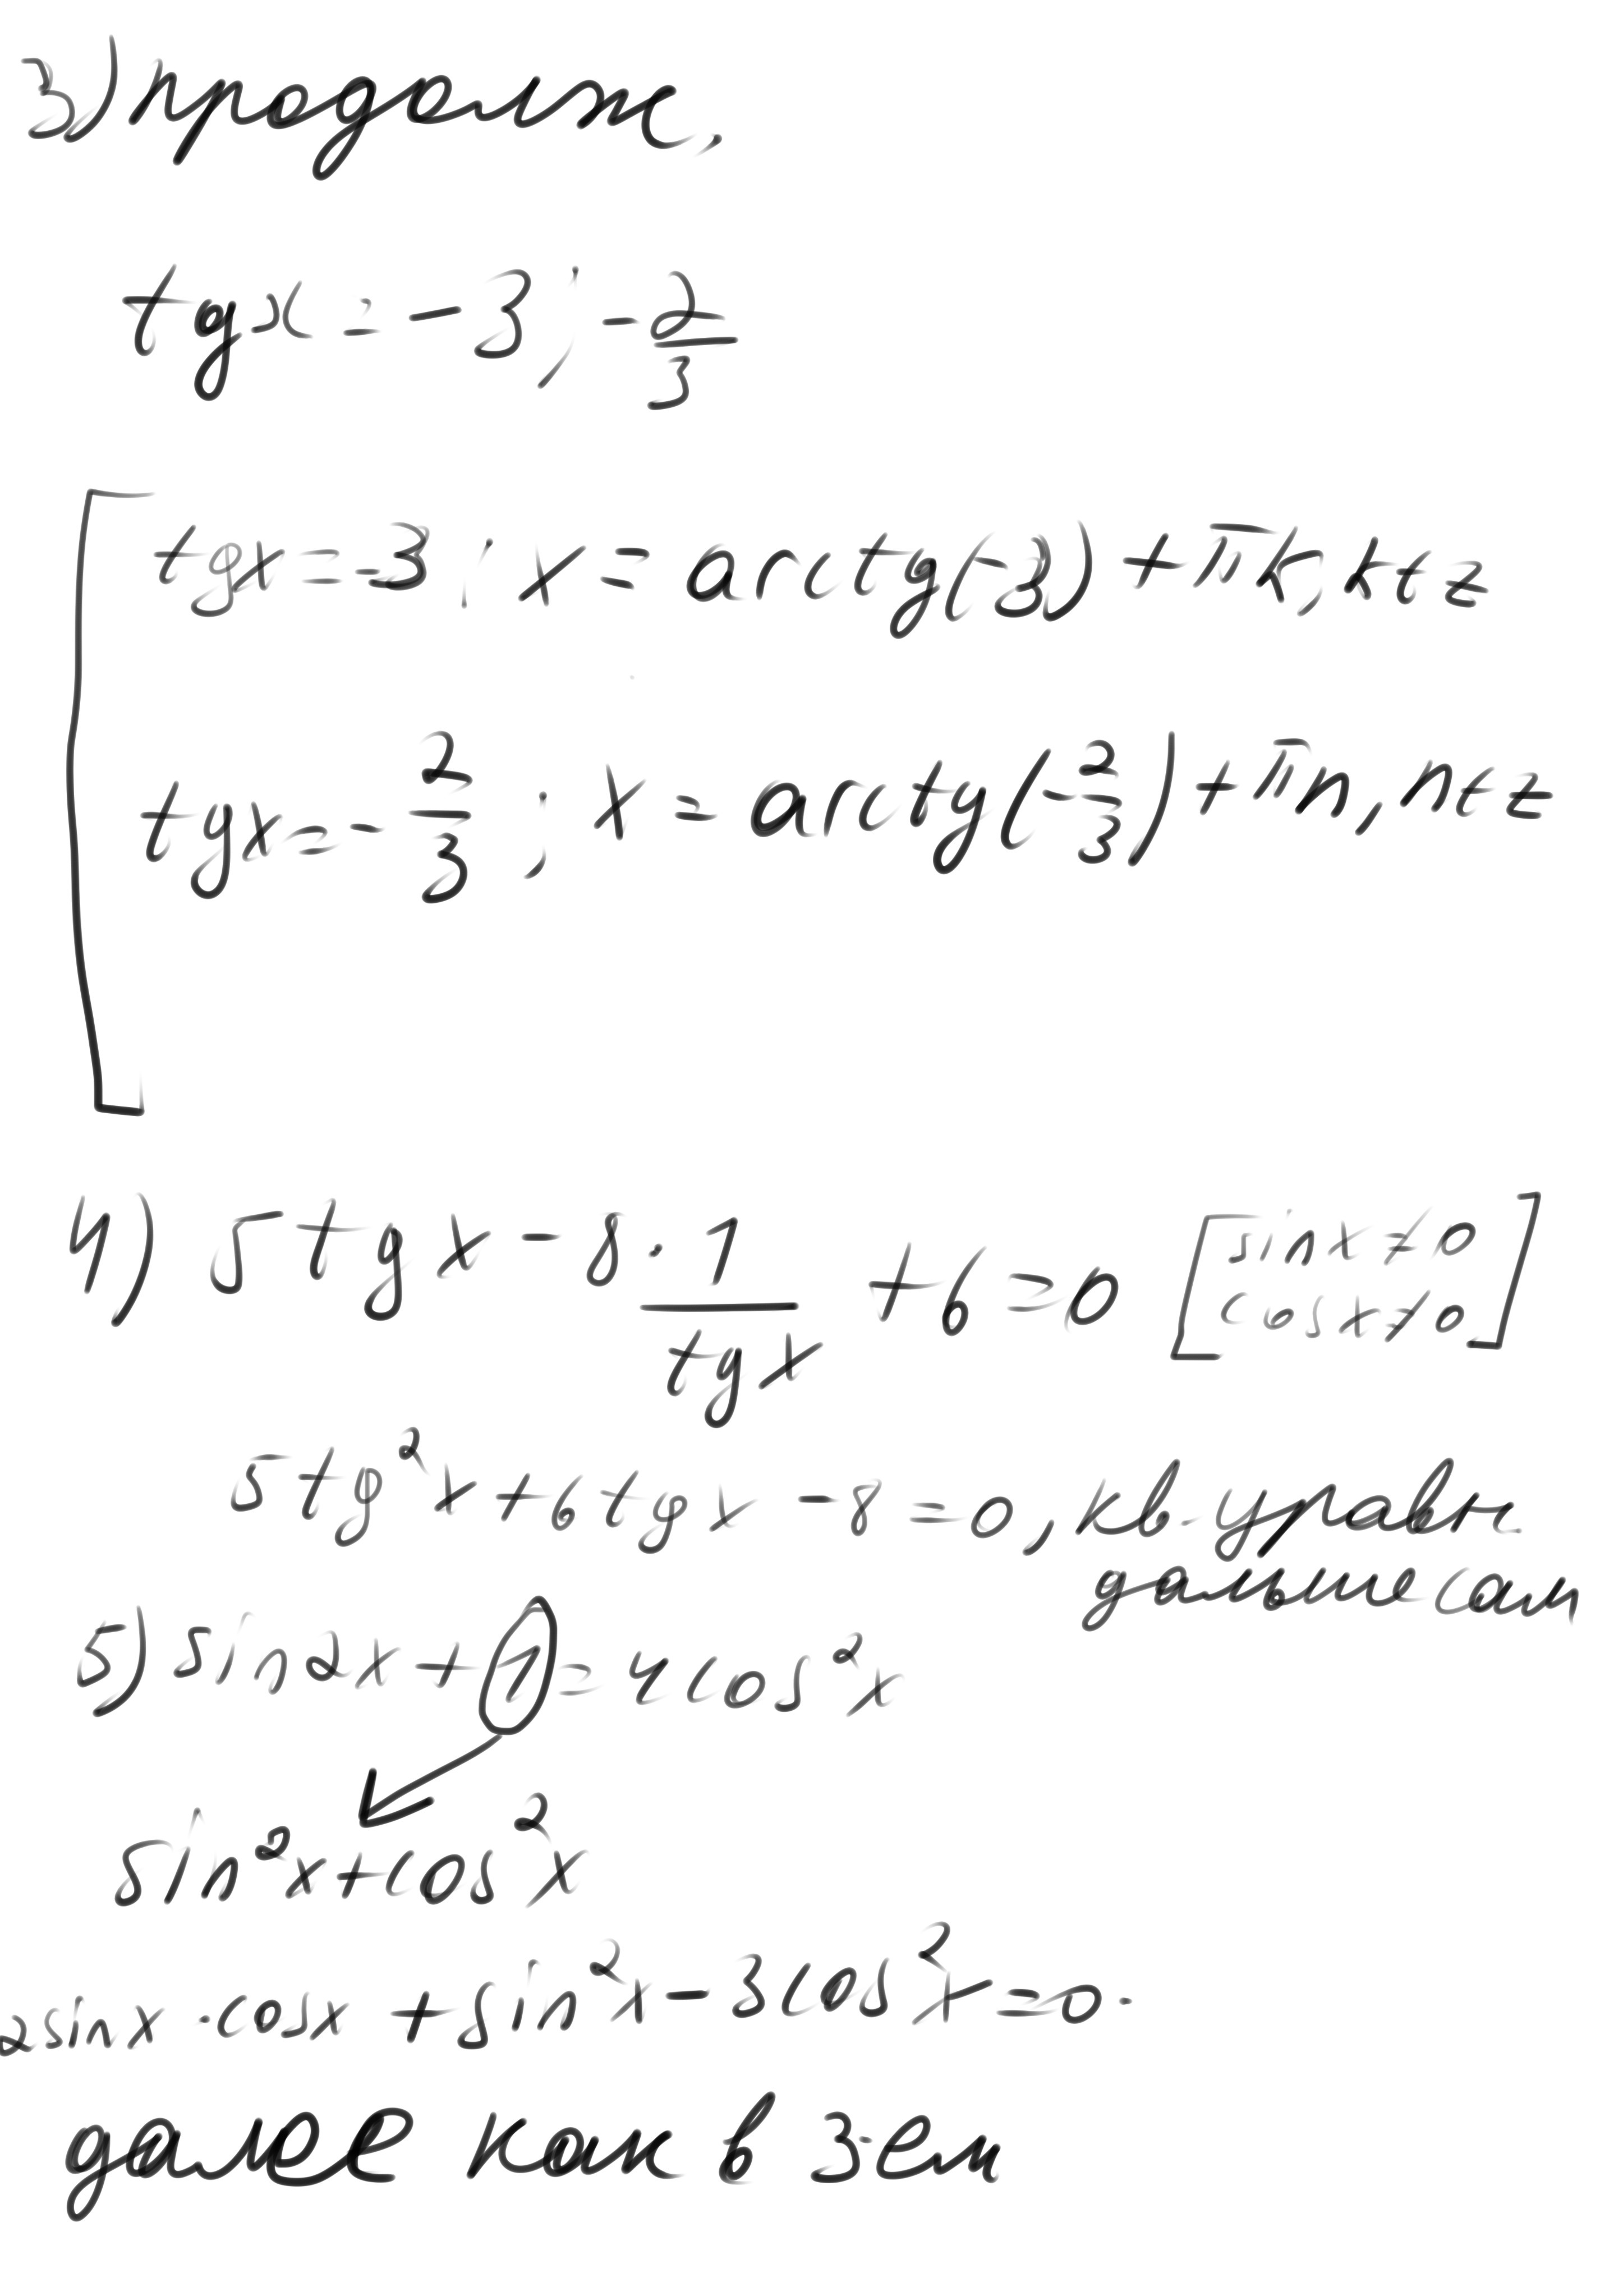 3) продолж.
tgx = -3; -2/3
tgx = -3; x = arctg(-3) + πk, k∈z
tgx = -2/3; x = arctg(-2/3) + πn, n∈z
4) 5tgx - 8·1/tgx + 6 = 0 [sinx≠0
cosx≠0]
5tg²x + 6tgx - 8 = 0, кв. уравн.
дальше сам
5) sin2x + 1 = 4cos²x
sin²x + cos²x
2sinx·cosx + sin²x - 3cos²x = 0.
далее как в 3-ем